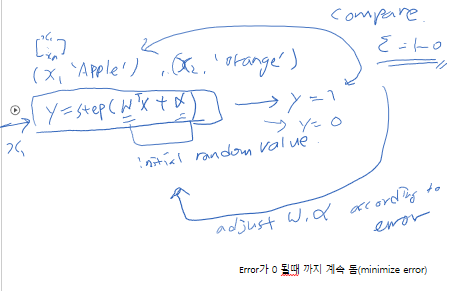 Compare.
[x₁ xₙ]
(x₁ 'Apple') , (x₂, 'orange')
Σ = 1-0
Y = step(WᵀX + α) → y = 1
→ y = 0
x₁
initial random value
adjust W, α according to error
Error가 0 될때 까지 계속 돔(minimize error)